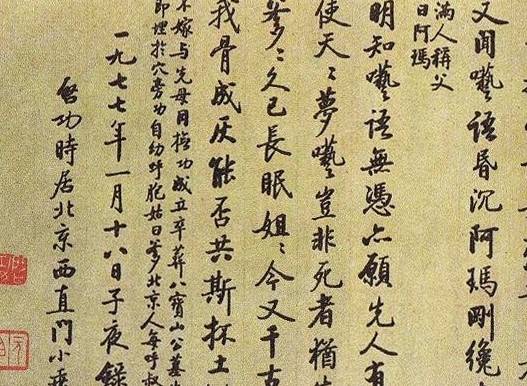 又聞囈語昏沉阿瑪剛纔
滿人稱父
曰阿瑪
明知囈語無憑亦願先人有
使天〻夢囈豈非死者猶
爹〻久已長眠姐〻今又千古
我骨成灰能否共斯抔土
不嫁与先母同撫功成立卒葬八寶山公墓
即埋於穴旁功自幼呼胞姑曰爹北京人每呼叔
一九七七年一月十八日子夜錄
啓功時居北京西直門小乘